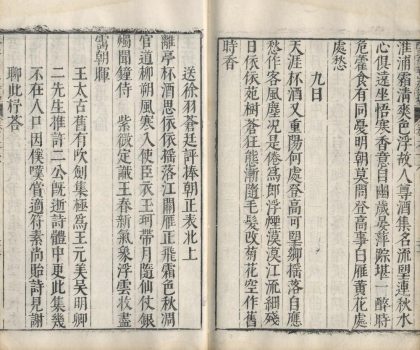 淮浦霜清爽色浮故人尊酒集名流塱連秋水
心俱遠坐悟寒香意自幽歲晏萍踪堪一醉時
危藿食有同憂明朝莫問登高事白雁黃花處
處愁
九日
天涯杯酒又重陽何處登高可塱鄉搖落自應
愁作客風塵况是倦為郎浮煙漠漠江流細殘
日依依苑樹蒼狂態漸隨毛髮改菊花空作舊
時香
送徐羽蒼廷評捧朝正表北上
離亭杯酒思依依搖落江關雁正飛霜色秋凋
官道柳朔風寒入使臣衣王珂帶月隨仙仗銀
燭聞鐘侍 紫微定識王春新氣象浮雲收盡
靄朝暉
王太古舊有吹劍集極爲王元美吴明卿
二先生推許二公旣逝詩體中更此集幾
不在人尸因僕嘆官適符素尚貽詩見謝
聊此行答